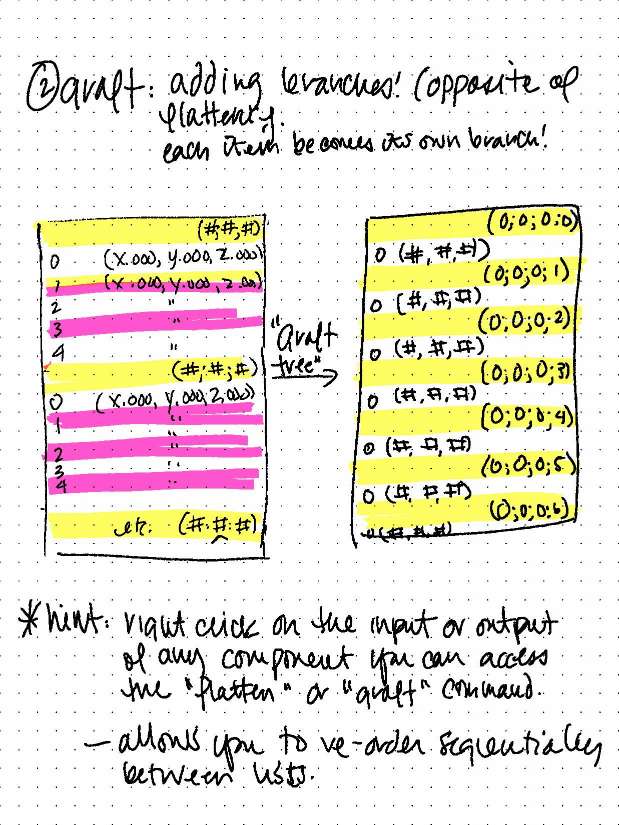 ② graft: adding branches! (opposite of
flatten).
each item becomes its own branch!
(#,#,#)
0 (X.000, Y.000, Z.000)
1 (X.000, Y.000, Z.00)
2 "
3 "
4 "
(#;#;#)
0 (X.000, Y.000, Z.000)
1 "
2 "
3 "
4 "
etc. (#:#:#)
"Graft
tree"
(0;0;0;0)
0 (#,#,#)
(0;0;0;1)
0 (#,#,#)
(0;0;0;2)
0 (#,#,#)
(0;0;0;3)
0 (#,#,#)
(0;0;0;4)
0 (#,#,#)
(0;0;0;5)
0 (#,#,#)
(0;0;0;6)
0 (#,#,#)
*hint: right click on the input or output
of any component you can access
the "flatten" or "graft" command.
— allows you to re-order sequentially
between lists.